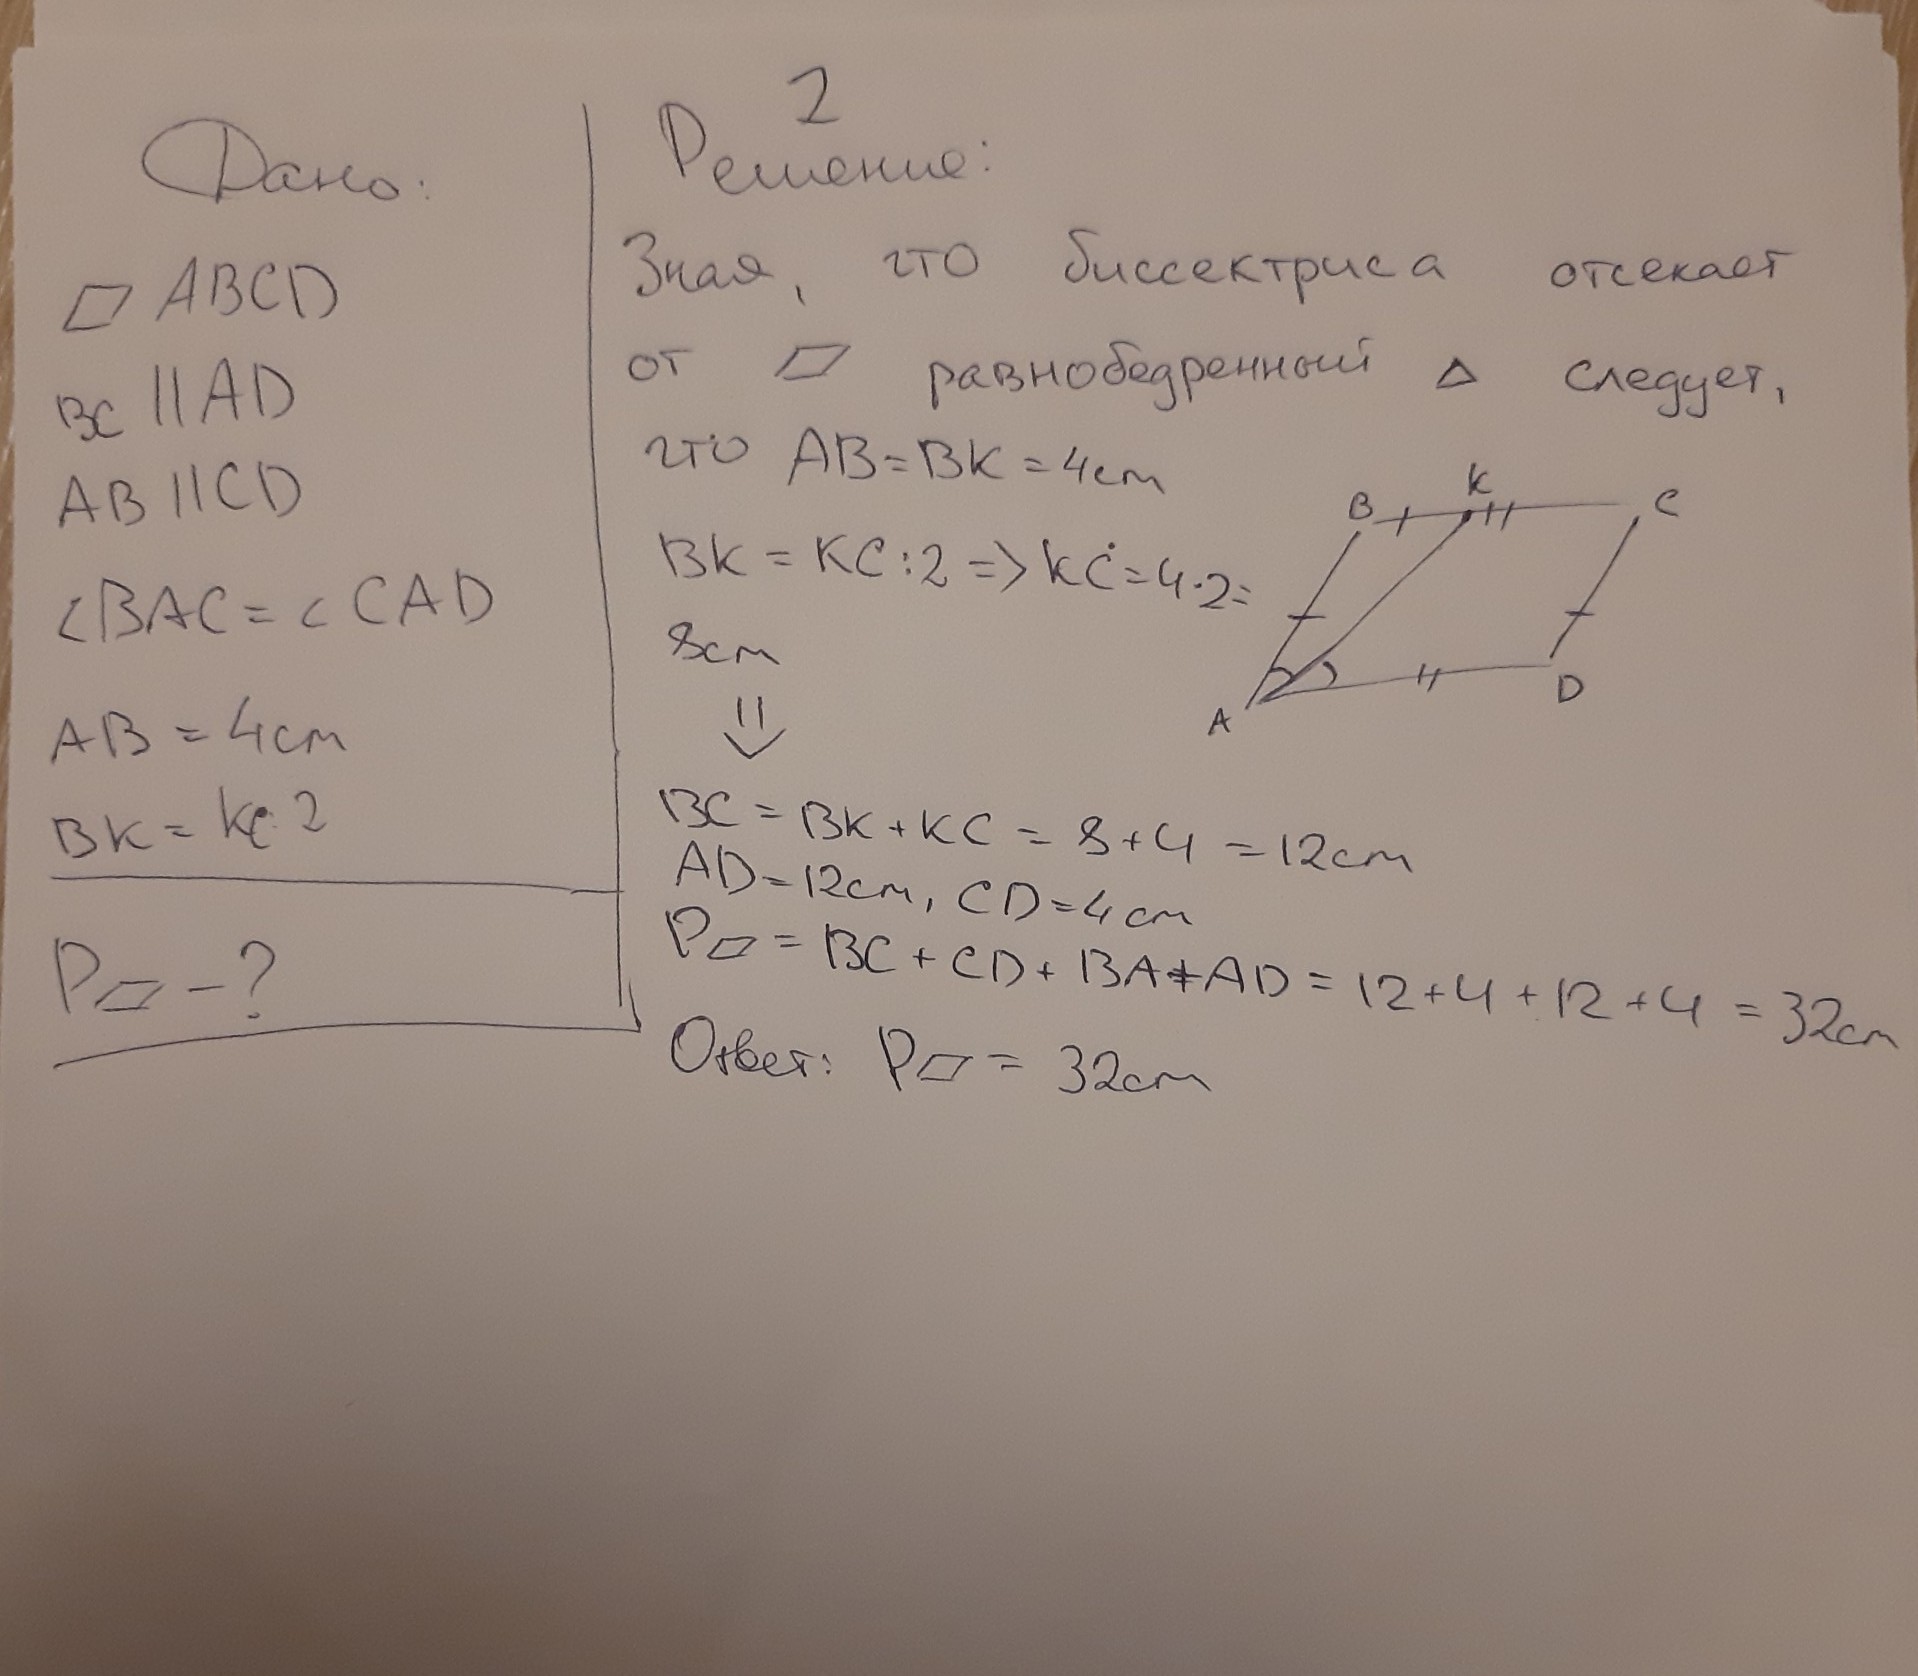 2
Дано:
▱ ABCD
BC || AD
AB || CD
∠BAC = ∠CAD
AB = 4см
BK = KC:2
P▱ - ?
Решение:
Зная, что биссектриса отсекает
от ▱ равнобедренный △ следует,
что AB = BK = 4см
BK = KC:2 => KC = 4·2=
8см
⇓
BC = BK + KC = 8 + 4 = 12см
AD = 12см, CD = 4см
P▱ = BC + CD + BA + AD = 12 + 4 + 12 + 4 = 32см
Ответ: P▱ = 32см
B K C
A D